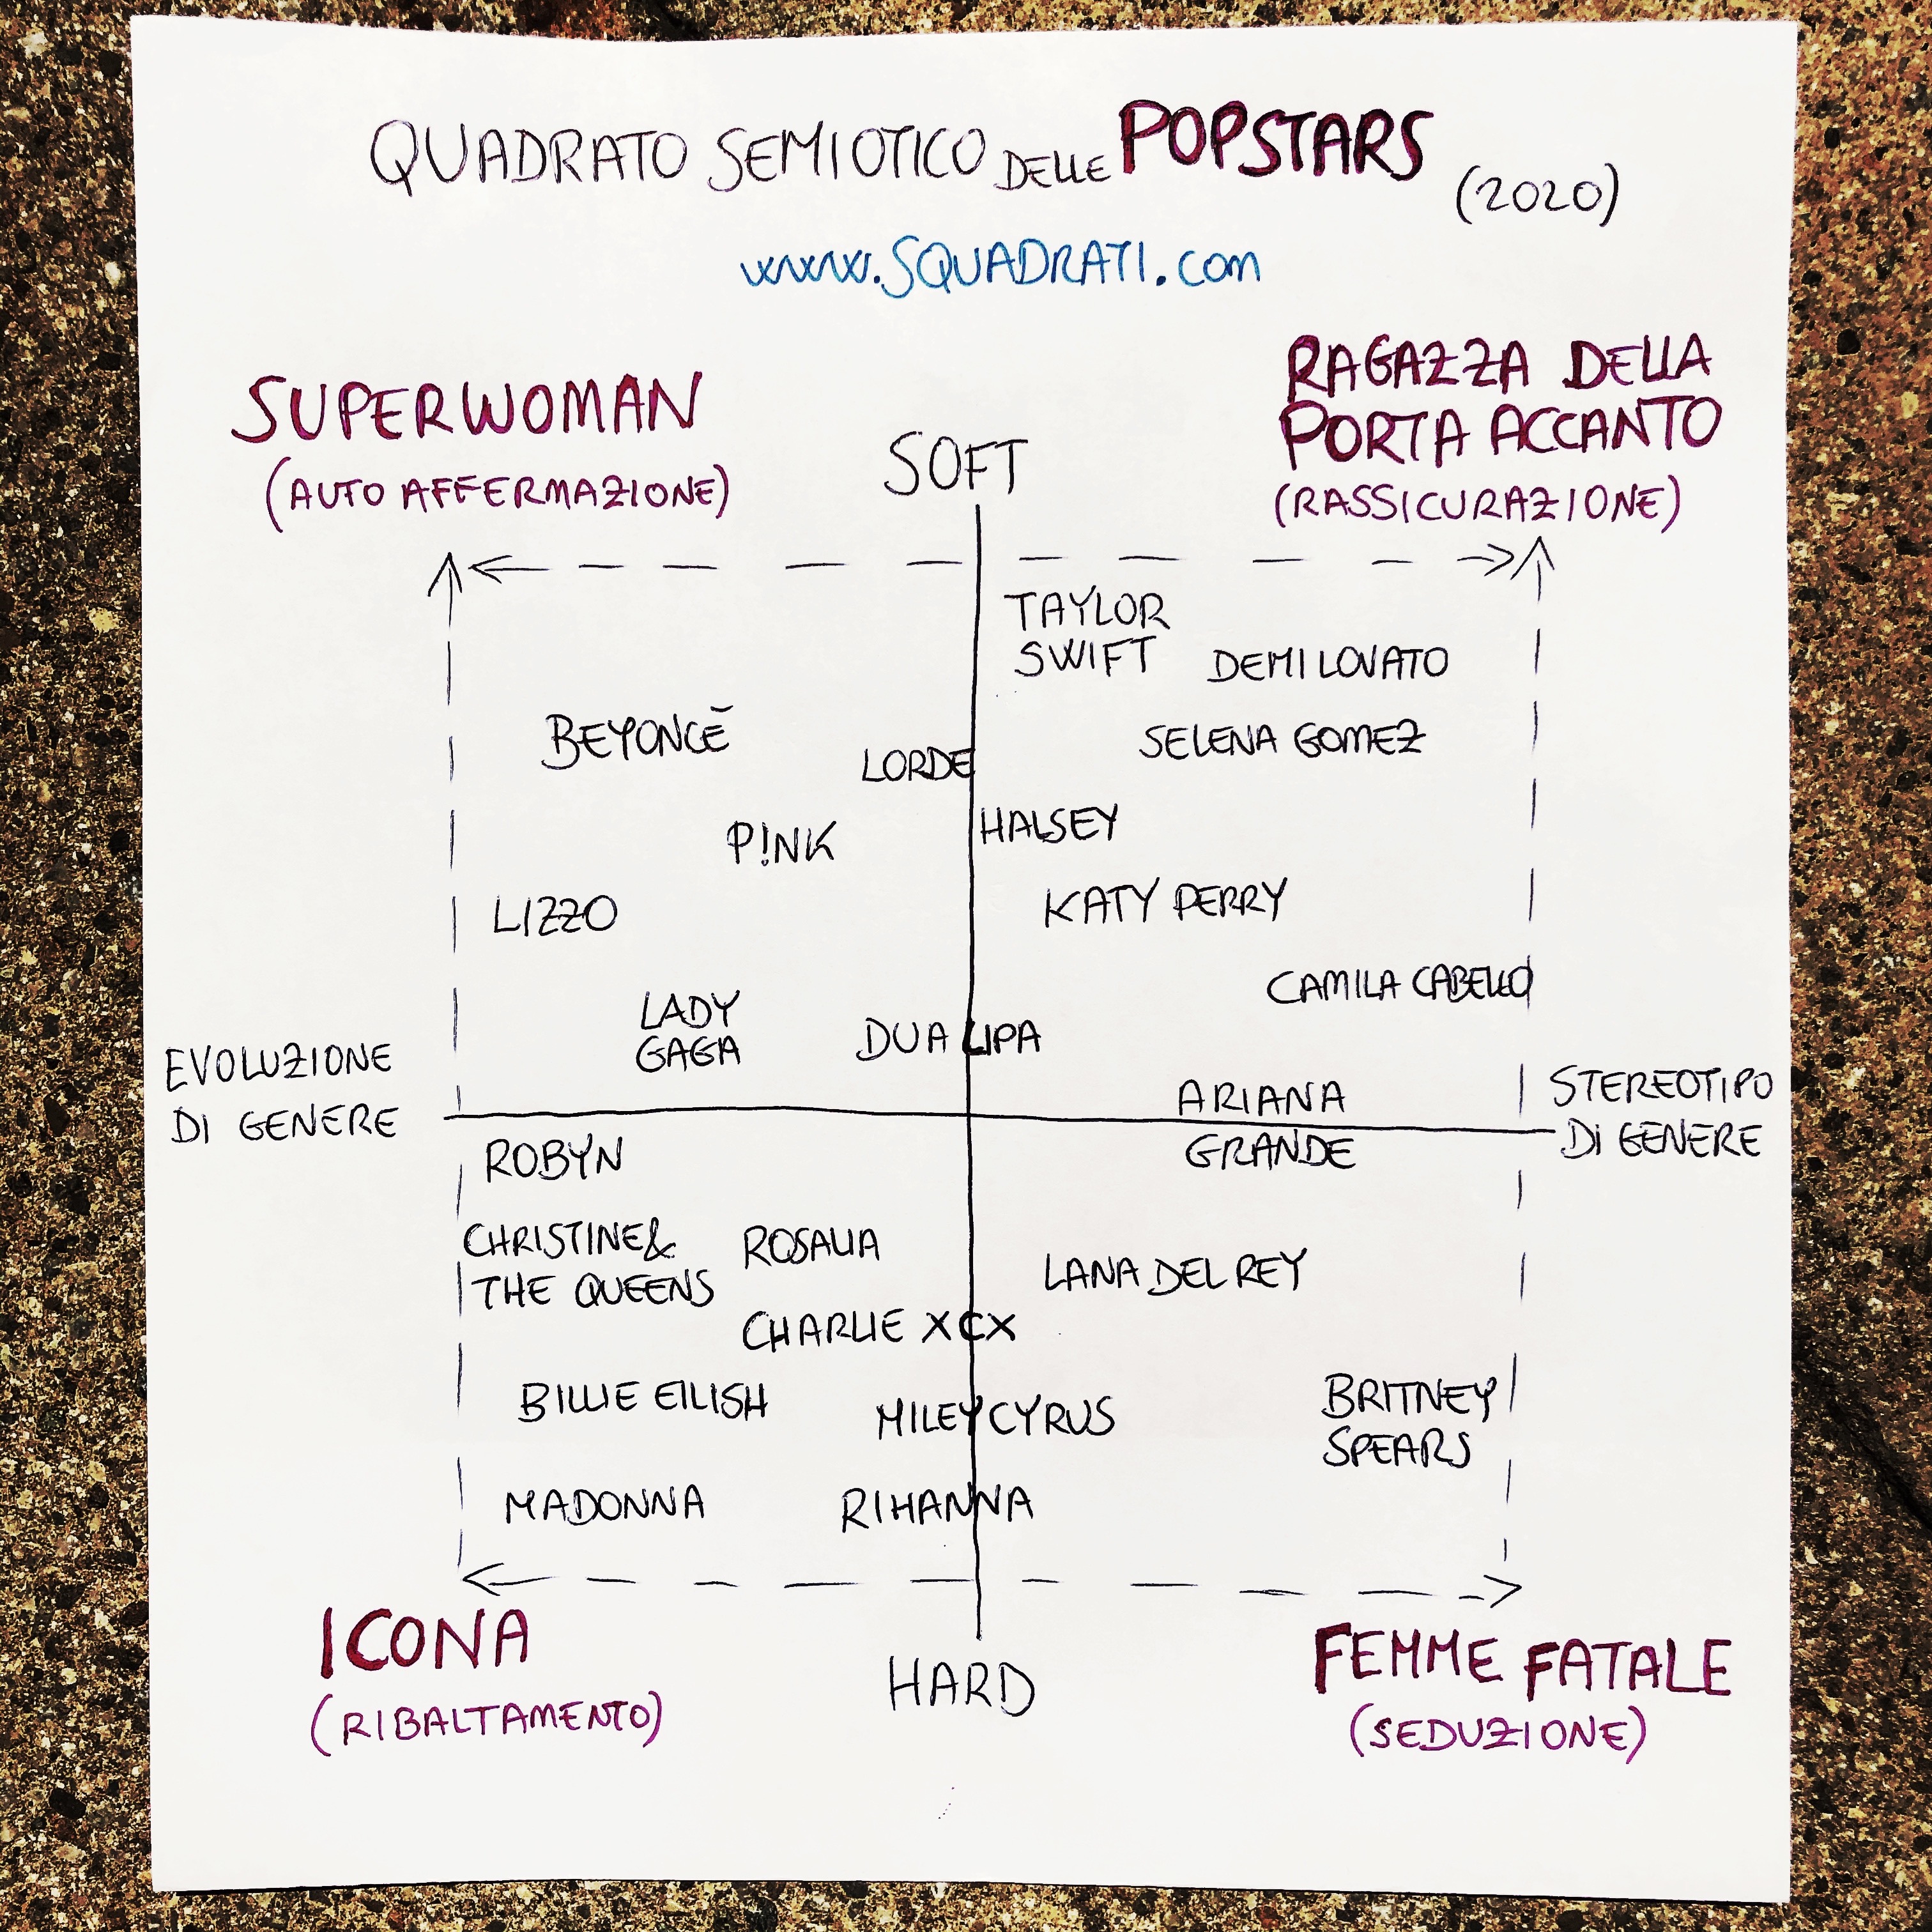 QUADRATO SEMIOTICO DELLE POPSTARS (2020)
www.SQUADRATI.com
SUPERWOMAN
(AUTO AFFERMAZIONE)
SOFT
RAGAZZA DELLA
PORTA ACCANTO
(RASSICURAZIONE)
TAYLOR
SWIFT
DEMI LOVATO
BEYONCÉ
LORDE
SELENA GOMEZ
P!NK
HALSEY
LIZZO
KATY PERRY
CAMILA CABELLO
LADY
GAGA
DUA LIPA
EVOLUZIONE
DI GENERE
ARIANA
GRANDE
STEREOTIPO
DI GENERE
ROBYN
CHRISTINE&
THE QUEENS
ROSALIA
LANA DEL REY
CHARLIE XCX
BILLIE EILISH
MILEY CYRUS
BRITNEY
SPEARS
MADONNA
RIHANNA
ICONA
(RIBALTAMENTO)
HARD
FEMME FATALE
(SEDUZIONE)